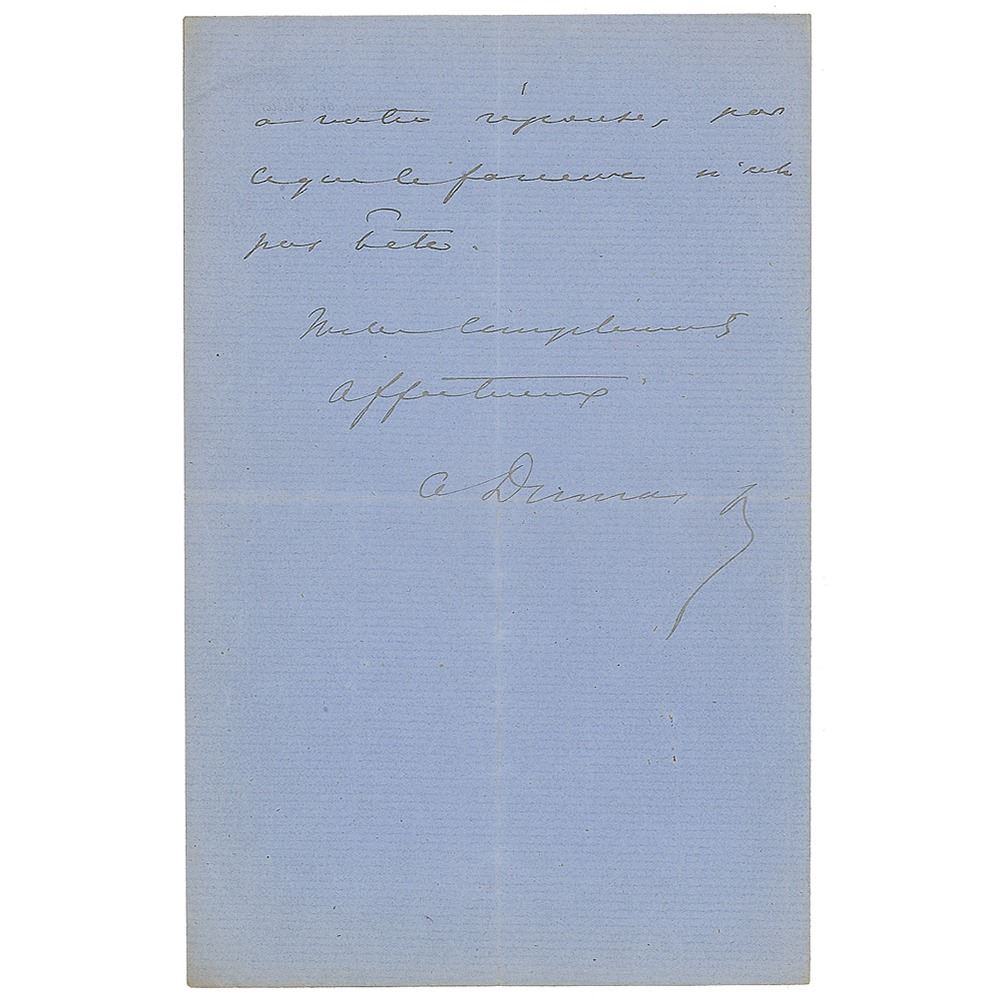 à votre réponse, par
ce que le farceur n'est
pas bête.
Mille compliments
affectueux
A Dumas f